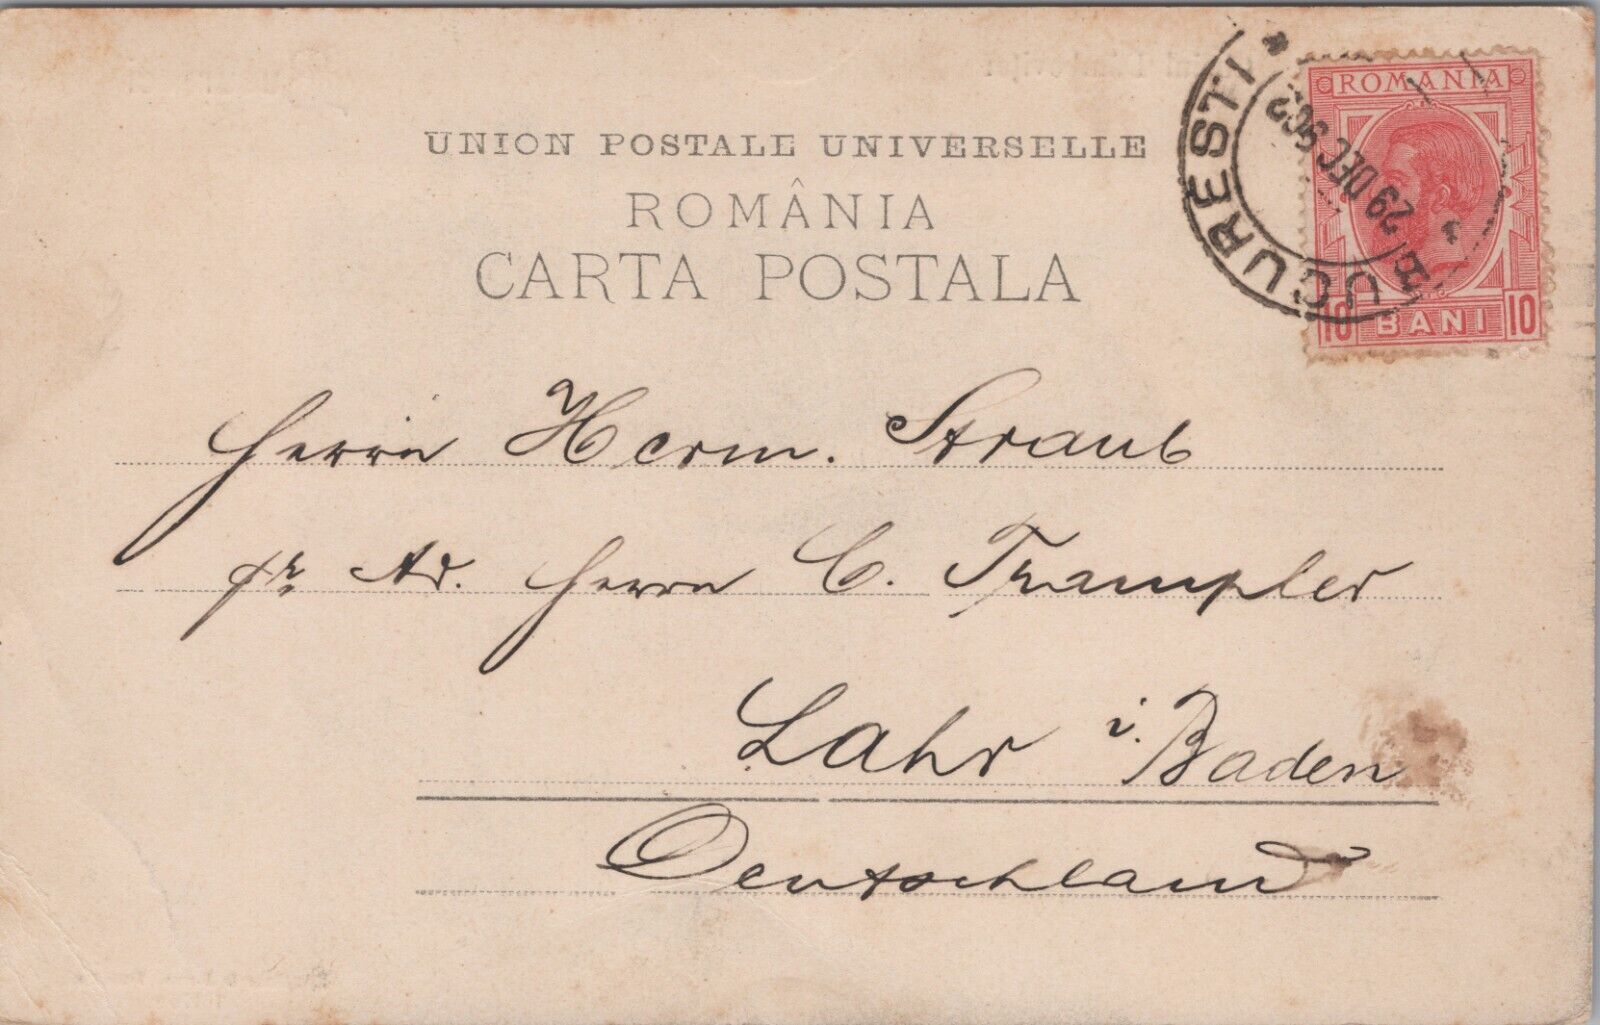 UNION POSTALE UNIVERSELLE
ROMÂNIA
CARTA POSTALA
ROMANIA
10 BANI 10
BUCURESCI
29 DEC 902
Herrn Herm. Straub
pr Ad. Herrn C. Trampler
Lahr i. Baden
Deutschland